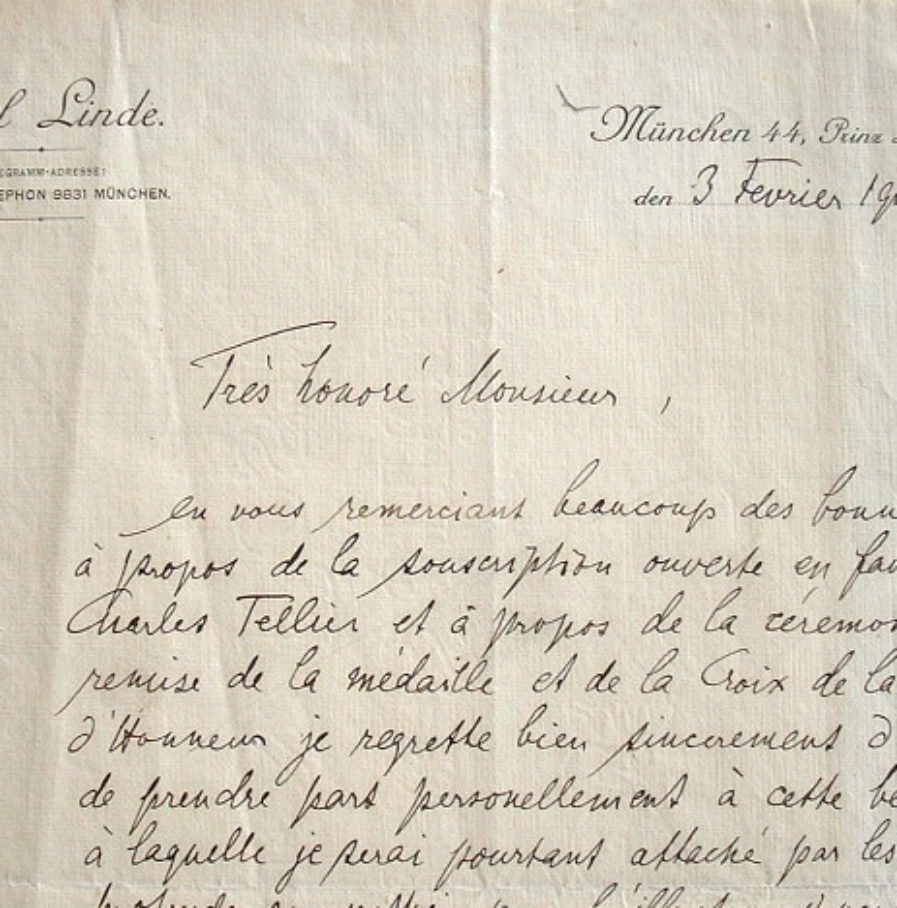 l Linde.
EGRAMM-ADRESSE:
EPHON 9831 MÜNCHEN.
München 44, Prinz
den 3 Fevrier 19
Très honoré Monsieur,
en vous remerciant beaucoup des bonn
à propos de la souscription ouverte en fav
Charles Tellier et à propos de la cérémon
remise de la médaille et de la Croix de la
d'Honneur je regrette bien sincerement d
de prendre part personellement à cette be
à laquelle je serai pourtant attaché par les